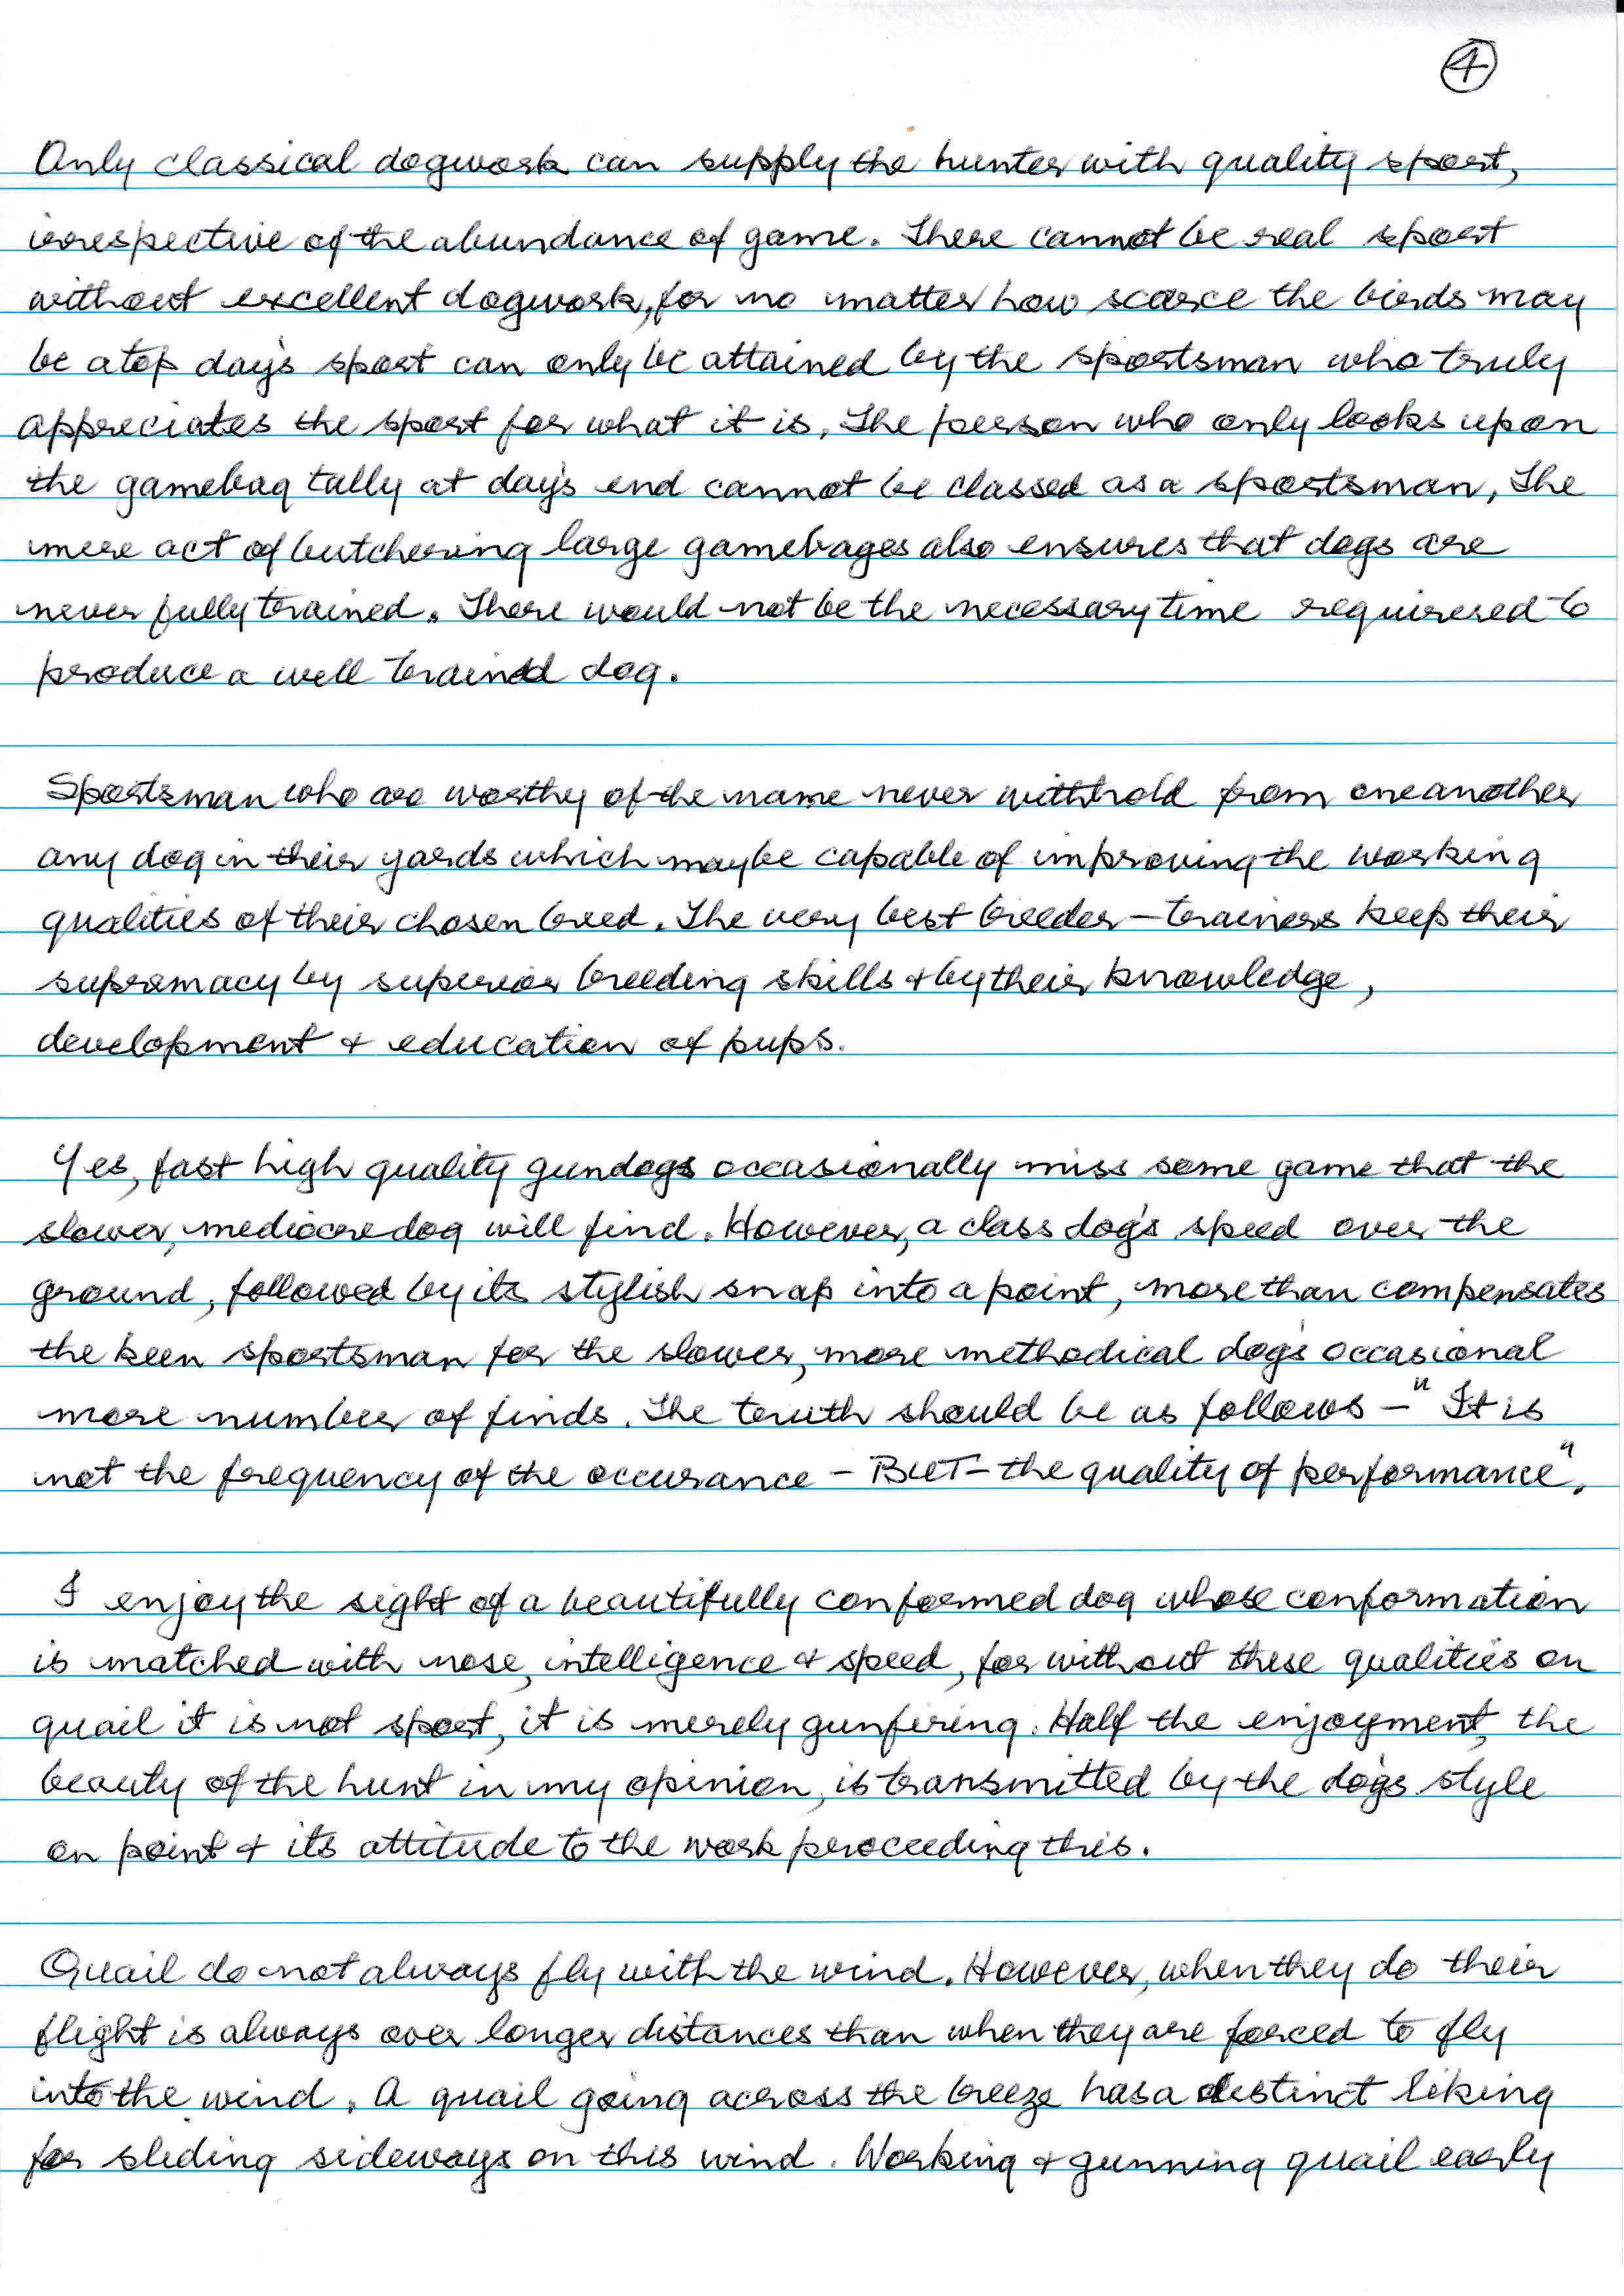 4
Only classical dogwork can supply the hunter with quality sport,
irrespective of the abundance of game. There cannot be real sport
without excellent dogwork, for no matter how scarce the birds may
be a top day's sport can only be attained by the sportsman who truly
appreciates the sport for what it is. The person who only looks upon
the gamebag tally at day's end cannot be classed as a sportsman. The
mere act of butchering large gamebages also ensures that dogs are
never fully trained. There would not be the necessary time requirered to
produce a well trained dog.
Sportsman who are worthy of the name never withhold from one another
any dog in their yards which maybe capable of improving the working
qualities of their chosen breed. The very best breeder - trainers keep their
supremacy by superior breeding skills & by their knowledge,
development & education of pups.
Yes, fast high quality gundogs occasionally miss some game that the
slower, mediocre dog will find. However, a class dog's speed over the
ground, followed by its stylish snap into a point, more than compensates
the keen sportsman for the slower, more methodical dog's occasional
more number of finds. The truth should be as follows - "It is
not the frequency of the occurance - BUT - the quality of performance".
I enjoy the sight of a beautifully conformed dog whose conformation
is matched with nose, intelligence & speed, for without these qualities on
quail it is not sport, it is merely gunfiring. Half the enjoyment, the
beauty of the hunt in my opinion, is transmitted by the dog's style
on point & its attitude to the work proceeding this.
Quail do not always fly with the wind. However, when they do their
flight is always over longer distances than when they are forced to fly
into the wind. A quail going across the breeze has a distinct liking
for sliding sideways on this wind. Working & gunning quail early